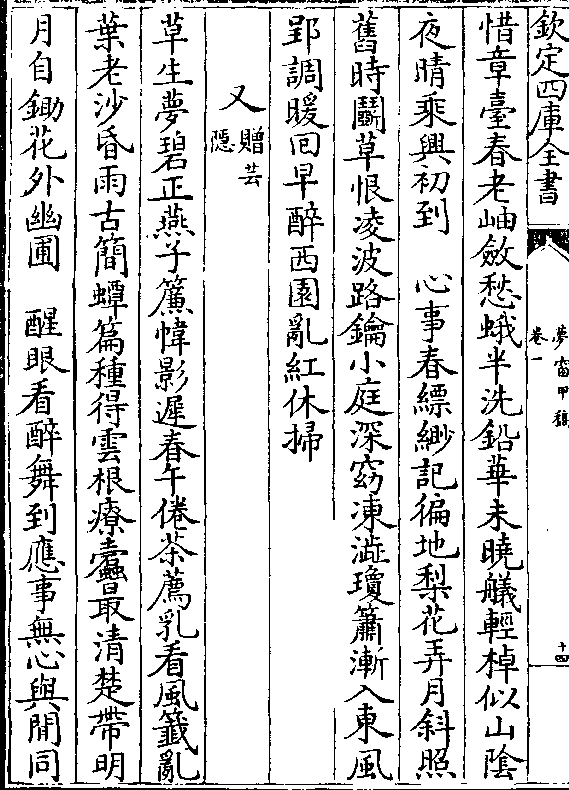 欽定四庫全書
夢窗甲稿
卷一
十四
惜章臺春老岫斂愁蛾半洗鉛華未曉艤輕棹似山陰
夜晴乘興初到　心事春縹緲記徧地梨花弄月斜照
舊時鬭草恨凌波路鑰小庭深窈凍澁瓊簫漸入東風
郢調暖回早醉西園亂紅休掃
又贈芸隠
草生夢碧正燕子簾幃影遲春午倦茶薦乳看風籤亂
葉老沙昏雨古簡蟫篇種得雲根療蠧最清楚帶明
月自鋤花外幽圃　醒眼看醉舞到應事無心與閒同